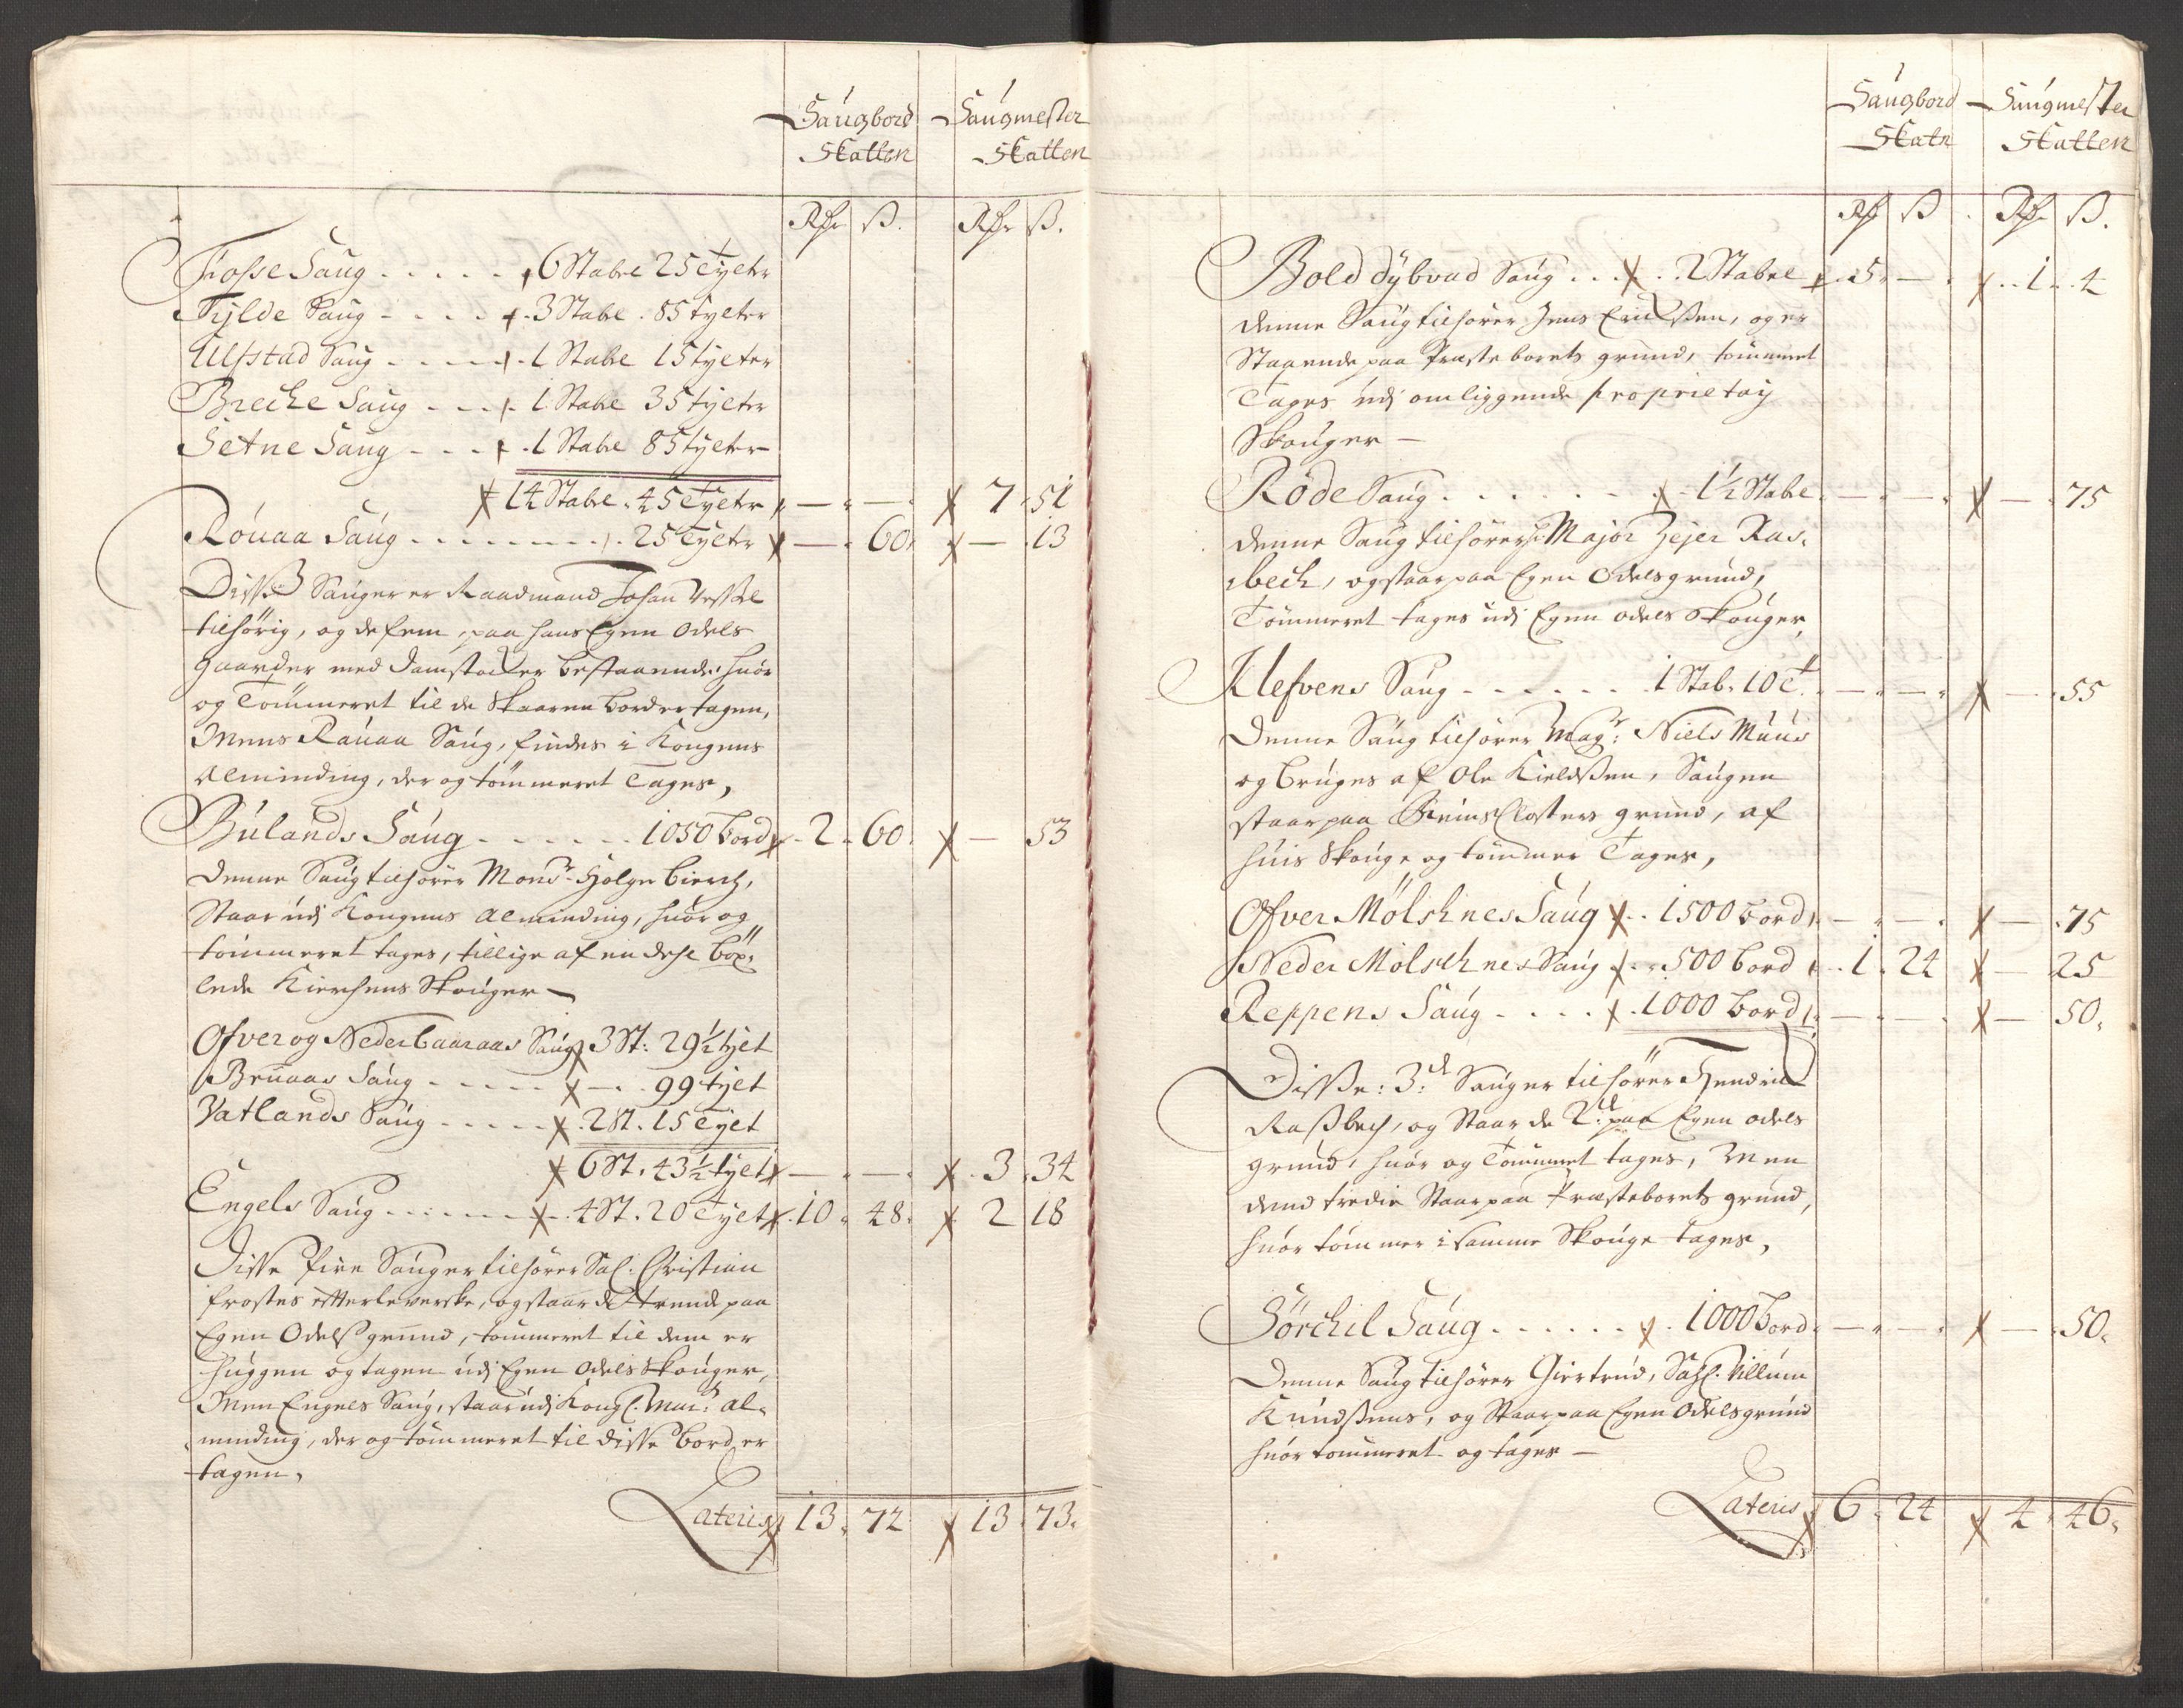 Saugbord Saugmester
Skatten Skatten
Rdr ß. Rdr ß.
Fosse Saug . . . . . 6 Stabe 25 tyeter
Tylde Saug - . . . . 3 Stabe . 85 tyeter
Ulfstad Saug . . . . . 1 Stabe 15 tyeter
Breche Saug . . . . 1 Stabe 35 tyeter
Setne Saug - . . . 1 Stabe 85 tyeter
14 Stabe . 45 tyeter — — 7 . 51
Rouaa Saug . . . . . . . . 25 tyeter — . 60. — . 13
Disse Sauger er Raadmand Johan Vessel
tilhörig, og de fem, paa hans Egen Odels
Gaarder med Damstocker bestaaende huor
og Tömmeret til de Skaaren border tagen,
Mens Rauaa Saug, findes i Kongens
Alminding, der og tömmeret Tages,
Bulands Saug . . . . . . 1050 bord . 2 . 60. — 53
Denne Saug tilhörer Monsr. Holger Bierch,
Staar udj Kongens Alminding, huor og
tömmeret tages, tillige af en dehl böx-
lede Kirchens Skouger —
Ofver og Neder baaraas Saug 3 St: 29½ tyet
Bruaas Saug . . . . . — . . 99 tyet
Vatlands Saug . . . . . 2 St. 15 tyet
6 St. 43½ tyet — — . 3 . 34
Engels Saug . . . . . . 4 St. 20 tyet . 10 . 48. 2 18
Disse fire Sauger tilhörer Sal: Christian
frostes efterleverske, og staar de trende paa
Egen Odelß grund, tömmeret til dem er
huggen og tagen udj Egen Odels Skouger,
Men Engels Saug, staar udj Kongl. May: al-
minding, der og tömmeret til disse bord er
tagen.
Lateris 13 . 72 13 . 73.
Saugbord Saugmester
Skatn Skatten
Rdr ß . Rdr ß.
Bold dybvad Saug . . . . 2 Stabel . 5 . — . . 1 . 4
Denne Saug tilhörer Jens Erichßen, og er
Staaende paa Præsteborets grund, tömmeret
Tages udj omliggende proprietary
Skouger —
Röde Saug . . . . . . . 1½ Stabe . — — — . 75
Denne Saug tilhörer hr. Major Zejer Ras-
bech, og staar paa Egen Odels grund,
Tömmeret tages udj Egen odels Skouger,
Klefvens Saug - . . . . . . 1 Stab. 10 t. — — — . 55
Denne Saug tilhörer Magr: Niels Muus
og bruges af Ole Kieldßen, Saugen
staar paa Reins Closters grund, af
huis Skouge og tömmer Tages,
Ofver Mölshnes Saug . . 1500 bord — — — . 75
Neder Mölschnes Saug . . 500 bord . 1 . 24 — 25
Reppens Saug . . . . . 1000 bord — — — 50.
Disse: 3de Sauger tilhörer Hendrich
Raßbech, og Staar de 2de paa Egen odels
grund, huor og Tömmeret tages, Men
dend tredie Staar paa Præsteborets grund,
huor tömmer i samme Skouge tages,
Sörchil Saug . . . . . . . 1000 bord — — — . 50.
Denne Saug tilhörer Giertrud, Sahl. Villum
Knudßens, og Staar paa Egen Odels grund
huor tömmeret og tages —
Lateris 6 . 24 4 . 46.